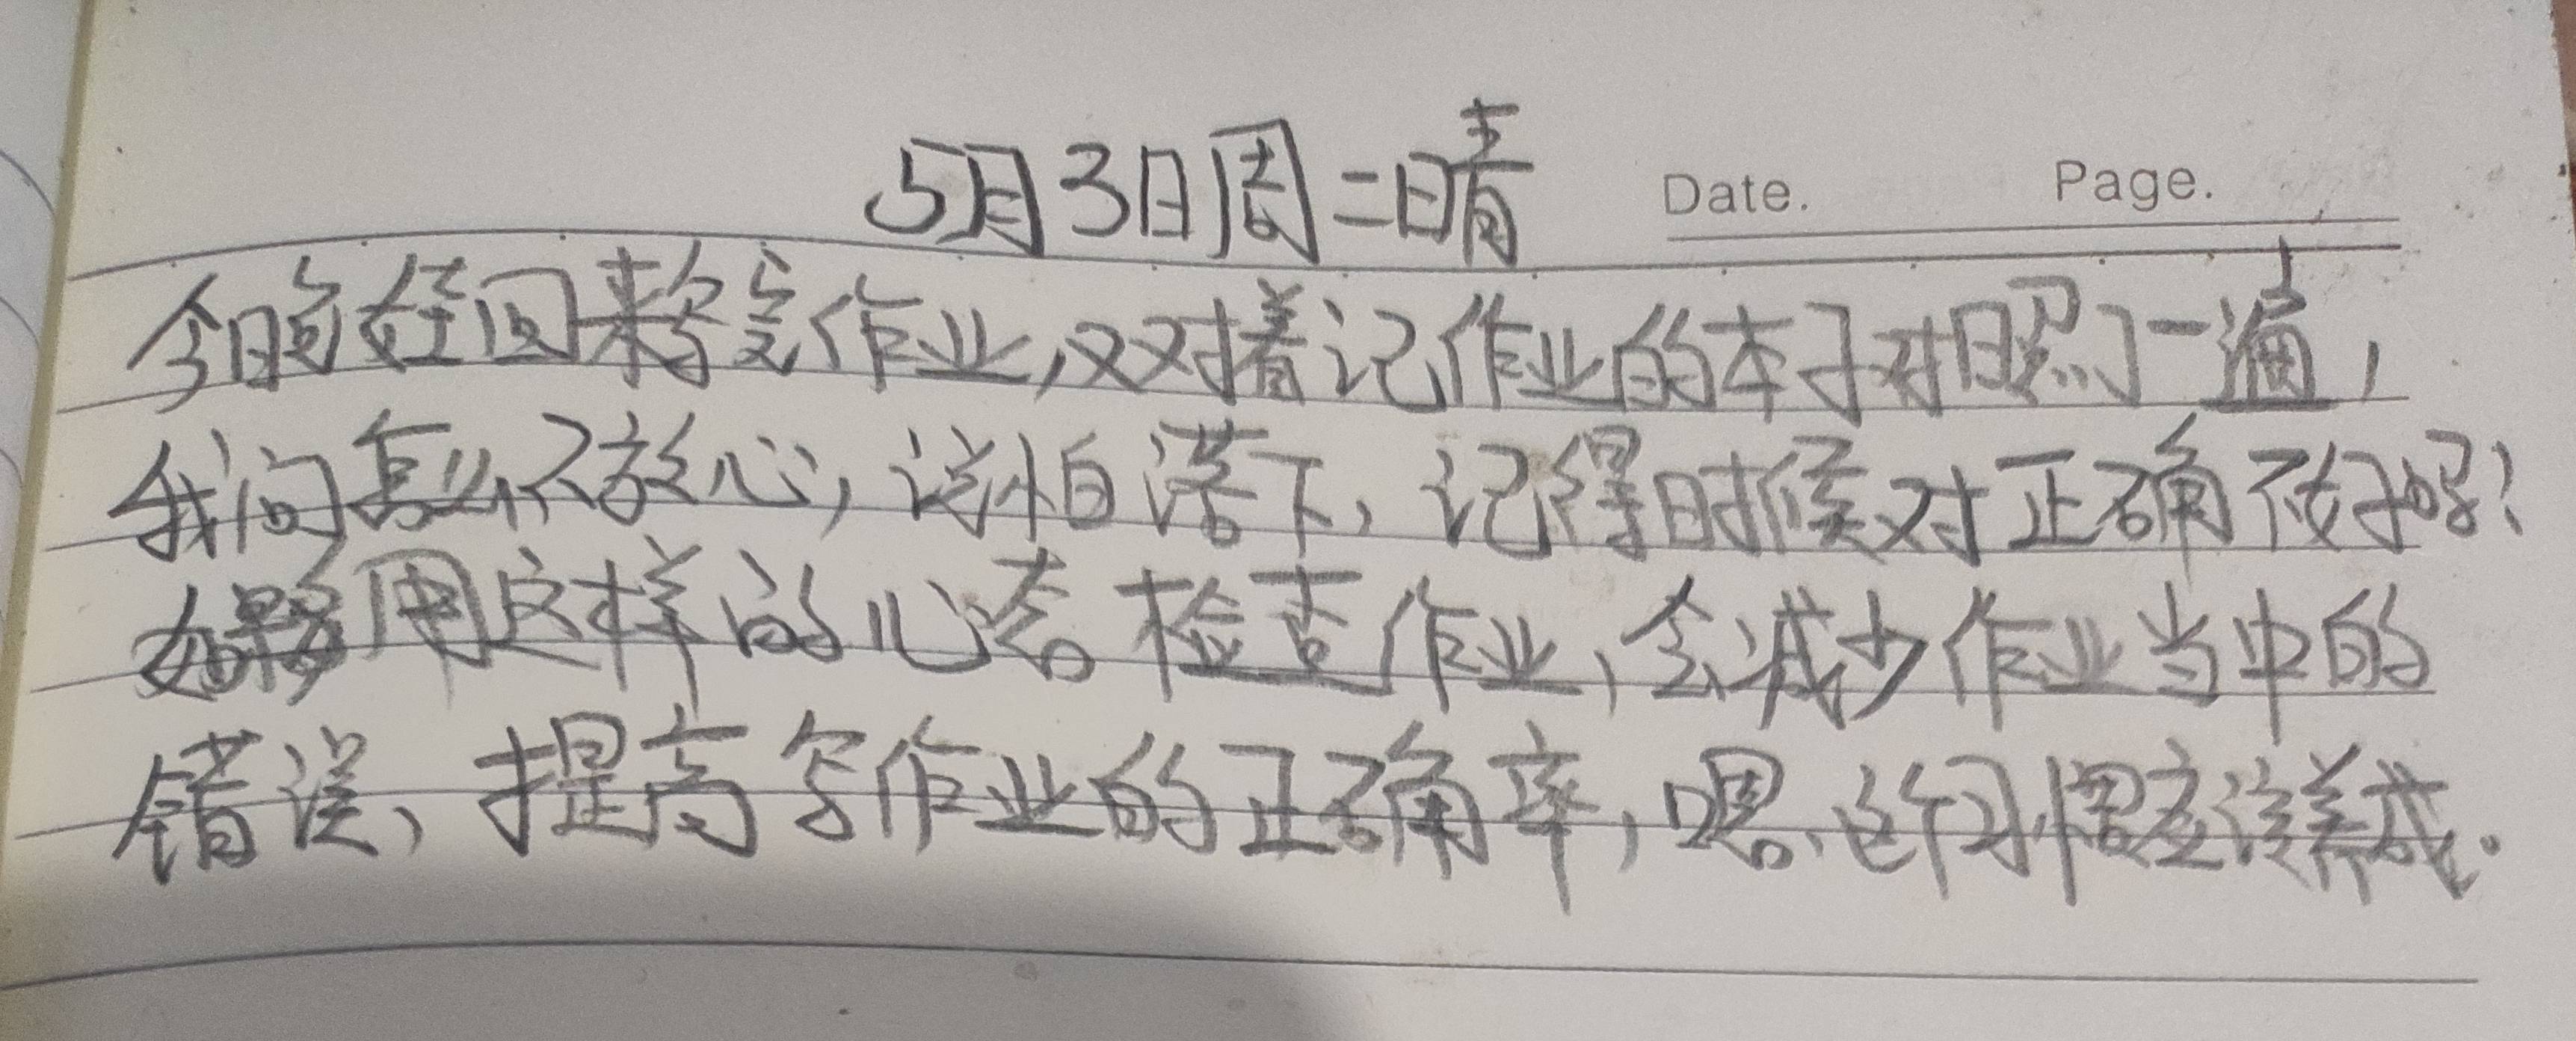 5月3日周二晴
Date. Page.
今晚侄回来写完作业,又对着记作业的本子对照了一遍,
我问怎么不放心,说怕落下,记得时候对正确不好吗?
如果用这样的心态检查作业,会减少作业当中的
错误,提高写作业的正确率,嗯,这个习惯应该养成.